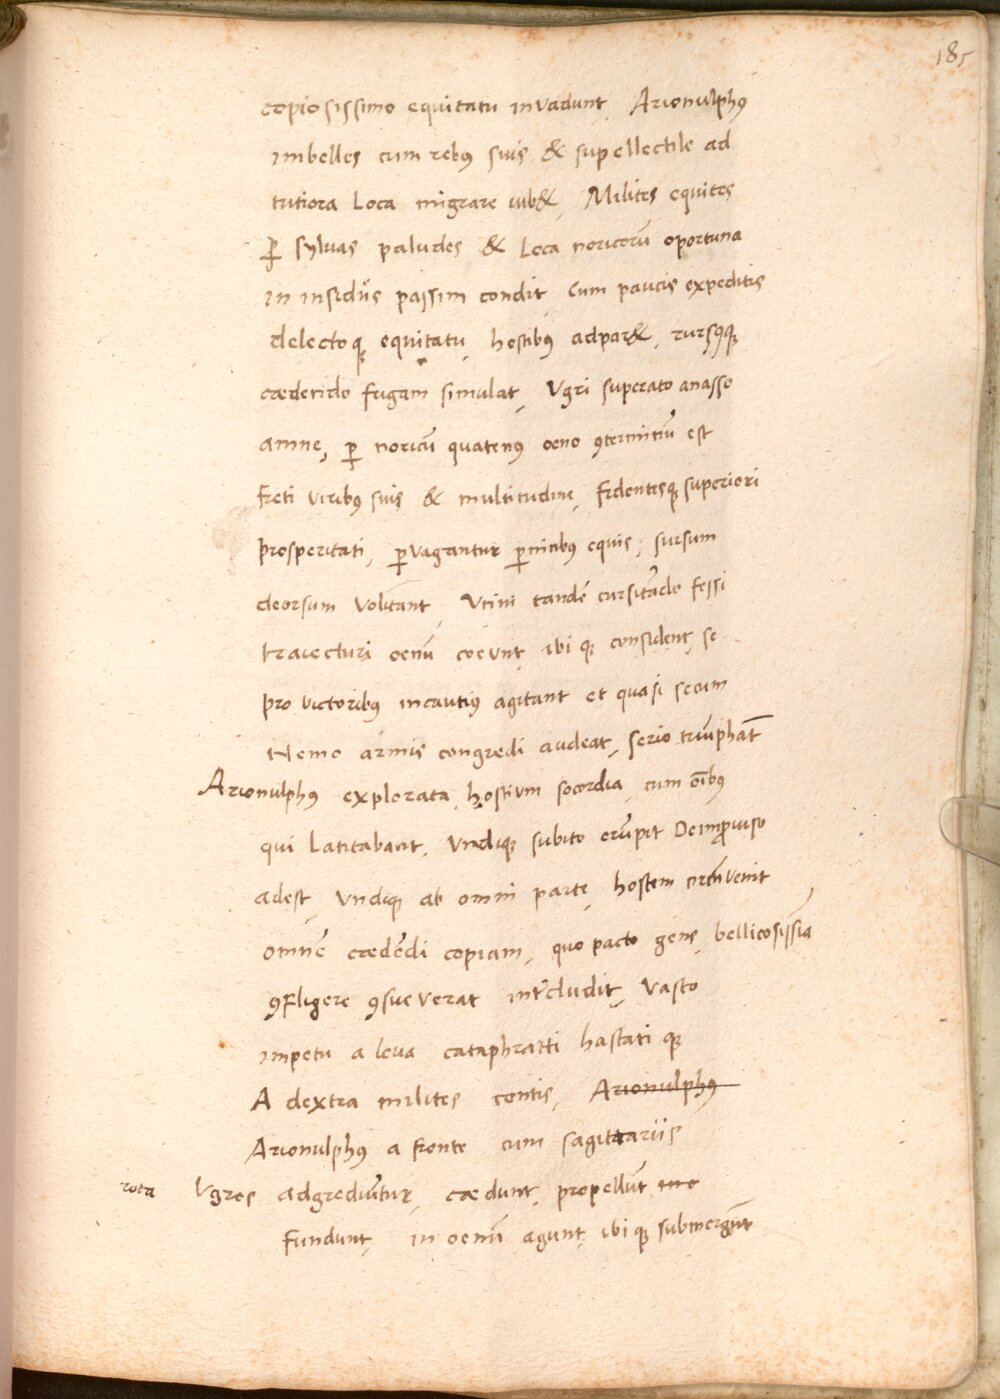 185
copiosissimo equitatu invadunt, Arionulphꝰ
imbelles cum rebꝰ suis & supellectile ad
tutiora Loca migrare iub&, Milites equites
ꝑ sylvas paludes & Loca noricorū oportuna
in insidiis passim condit, Cum paucis expeditis
delectoqꝫ equitatu, hostibꝰ adpar&, rursꝰqꝫ
cædendo fugam simulat, Vgri superato anasso
amne, ꝑ noricū quatenꝰ oeno ꝯterminū est
freti viribꝰ suis & multitudine, fidentesqꝫ superiori
prosperitati, ꝑvagrantur ꝑnicibꝰ equis, sursum
deorsum volitant, Vtini tandē cursitādo fessi
traiecturi oenū coeunt, ibi qꝫ considenț se
pro victoribꝰ incautiꝰ agitant et quasi secum
Nemo armis congredi audeat, serio triūphāt
Arionulphꝰ explorata hostium socordia, cum oībꝰ
qui Latitabant, Vndiqꝫ subito erūpit Deimꝓuiso
adest, Vndiqꝫ ab omni parte, hostem circūvenit
omnē cædēdi copiam, quo pacto gens, bellicosissīa
ꝯfligere ꝯsueverat intercludit, Vasto
impetu a leva cataphratti hastati qꝫ
A dextra milites contis, Arionulphꝰ
Arionulphꝰ a fronte cum sagittariis
rota Vgros adgrediūtur, cædunt, propellūt
fundunt, in oenū agunt, ibi qꝫ submergūt